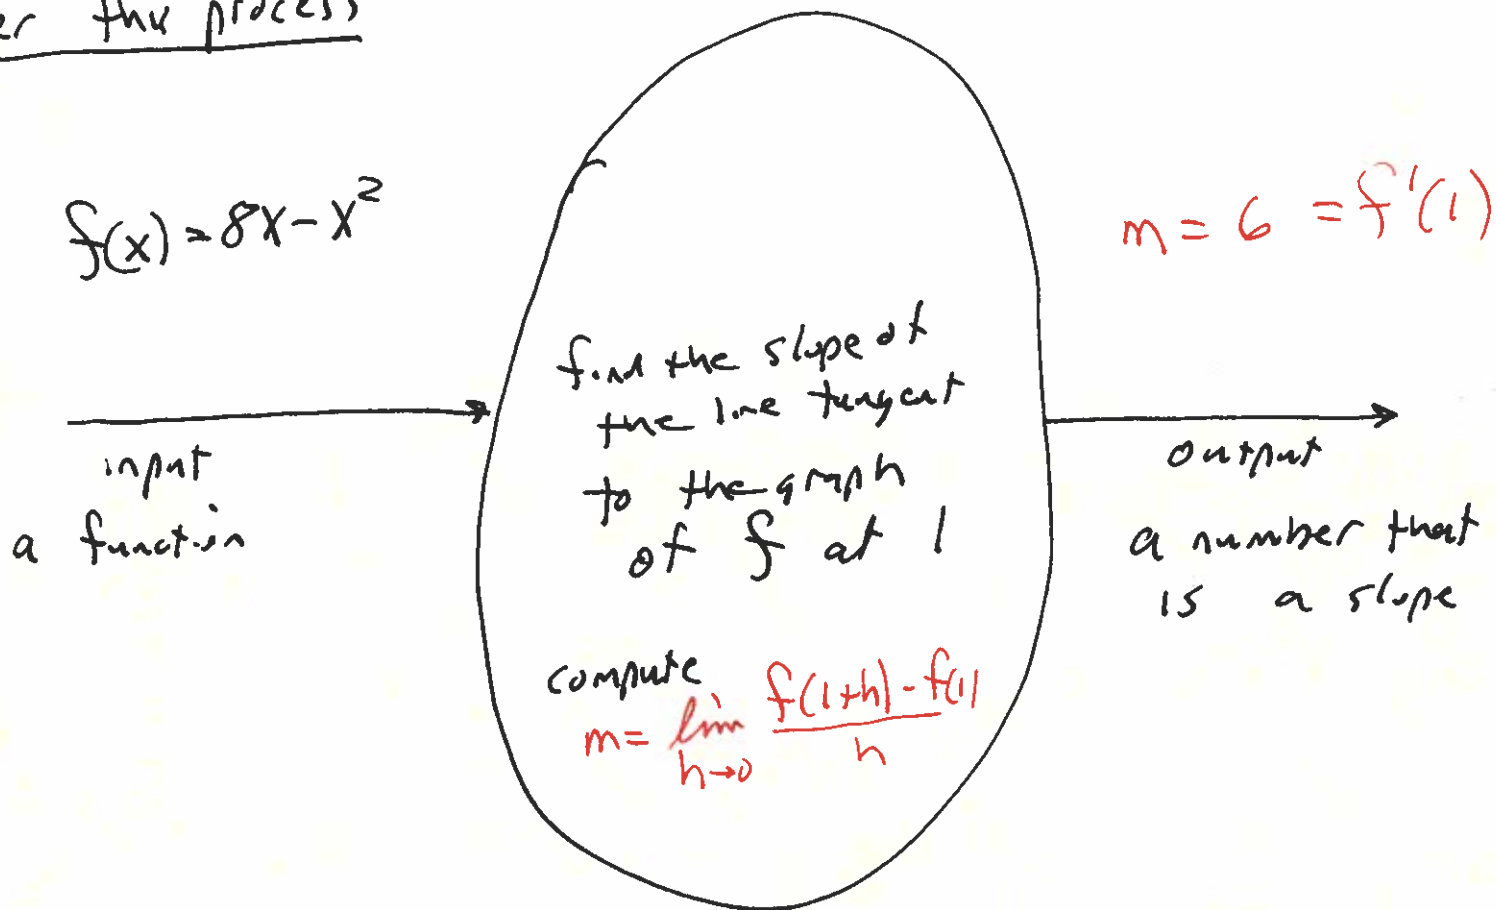 er the process
f(x) = 8x - x²
input
a function
find the slope of
the line tangent
to the graph
of f at 1
compute
m = lim h→0 f(1+h) - f(1) / h
m = 6 = f'(1)
output
a number that
is a slope